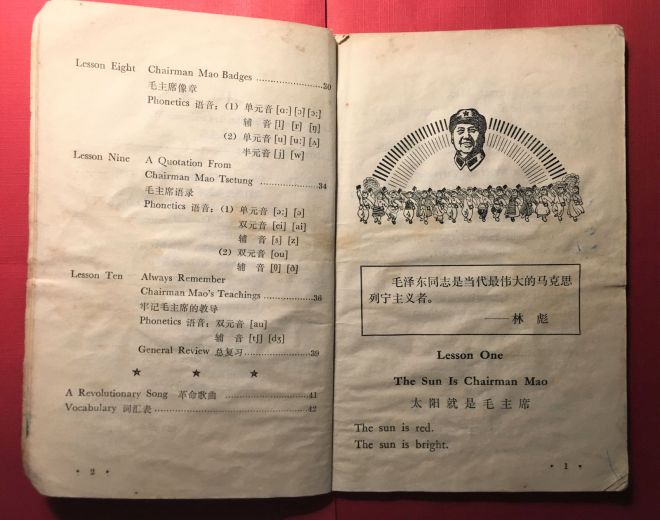 Lesson Eight Chairman Mao Badges ........................ 30
毛主席像章
Phonetics 语音：(1) 单元音 [ɑ:] [ɔ] [ɔ:]
辅 音 [l] [r] [ŋ]
(2) 单元音 [u] [u:] [ʌ]
半元音 [j] [w]
Lesson Nine A Quotation From
Chairman Mao Tsetung ........................ 34
毛主席语录
Phonetics 语音：(1) 单元音 [ə:] [ə]
双元音 [ei] [ai]
辅 音 [s] [z]
(2) 双元音 [ou]
辅 音 [θ] [ð]
Lesson Ten Always Remember
Chairman Mao's Teachings ........................ 36
牢记毛主席的教导
Phonetics 语音：双元音 [au]
辅 音 [tʃ] [dʒ]
General Review 总复习 ........................ 39
★ ★ ★
A Revolutionary Song 革命歌曲 ........................ 41
Vocabulary 词汇表 ........................ 42
· 2 ·
毛泽东同志是当代最伟大的马克思
列宁主义者。
——林 彪
Lesson One
The Sun Is Chairman Mao
太阳就是毛主席
The sun is red.
The sun is bright.
· 1 ·